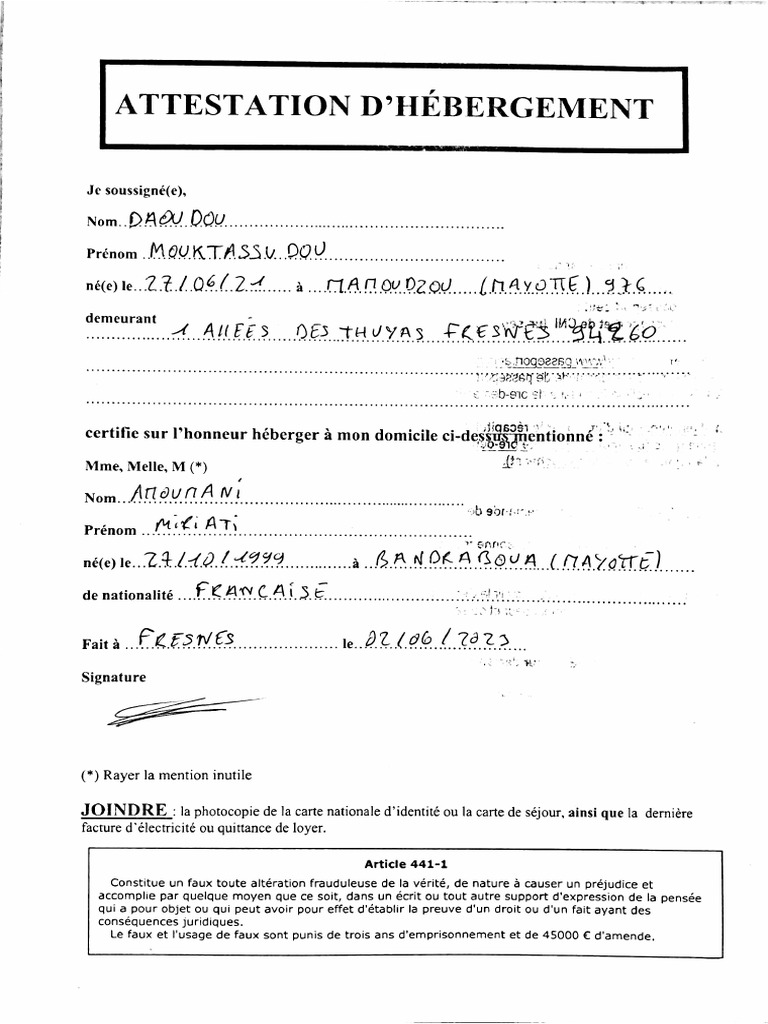 ATTESTATION D'HÉBERGEMENT
Je soussigné(e),
Nom DAOUDOU
Prénom MOUKTASSUDOU
né(e) le 27/06/21 à MAMOUDZOU (MAYOTTE) 976
demeurant
1 AllÉES DES THUYAS FRESNES 94260
certifie sur l'honneur héberger à mon domicile ci-dessus mentionné :
Mme, Melle, M (*)
Nom AMOUMANi
Prénom MiRiATi
né(e) le 27/10/1999 à BANDRABOUA (MAYOTTE)
de nationalité FRANCAISE
Fait à FRESNES le 02/06/2023
Signature
(*) Rayer la mention inutile
JOINDRE : la photocopie de la carte nationale d'identité ou la carte de séjour, ainsi que la dernière
facture d'électricité ou quittance de loyer.
Article 441-1
Constitue un faux toute altération frauduleuse de la vérité, de nature à causer un préjudice et
accomplie par quelque moyen que ce soit, dans un écrit ou tout autre support d'expression de la pensée
qui a pour objet ou qui peut avoir pour effet d'établir la preuve d'un droit ou d'un fait ayant des
conséquences juridiques.
Le faux et l'usage de faux sont punis de trois ans d'emprisonnement et de 45000 € d'amende.